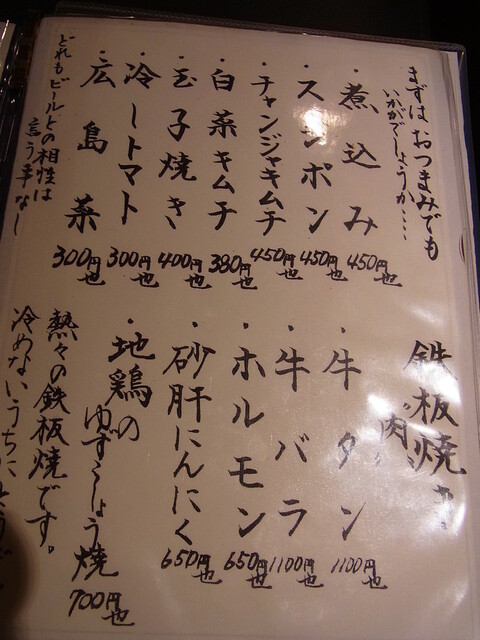 まずはおつまみでも
いかがでしょうか….
・煮込み 450円也
・スジポン 450円也
・チャンジャキムチ 450円也
・白菜キムチ 380円也
・玉子焼き 400円也
・冷しトマト 300円也
・広島菜 300円也
どれもビールとの相性は
言う事なし
鉄板焼き
"肉"
・牛タン 1100円也
・牛バラ 1100円也
・ホルモン 650円也
・砂肝にんにく 650円也
・地鶏の
ゆずこしょう焼 700円也
熱々の鉄板焼です。
冷めないうちに